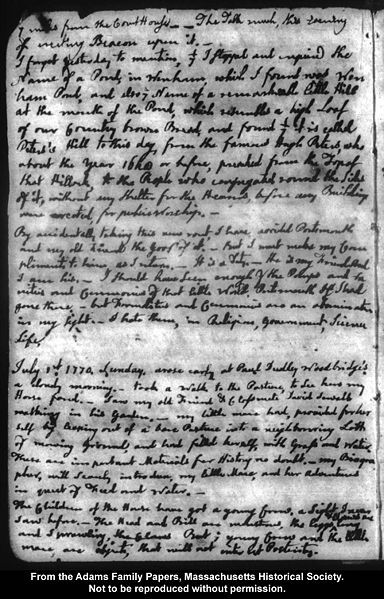 7 miles from the Court House. — The Talk much, this Evening
of erecting Beacon upon it. —
I forgot Yesterday to mention, yt I stopped and enquired the
Name of a Pond, in Wenham, which I found was Wen
ham Pond, and also ye Name of a remarkable little Hill
at the mouth of the Pond, which resembles a high Loaf
of our Country brown Bread, and found yt it is called
Peters's Hill to this day, from the famous Hugh Peters, who
about the Year 1640 or before, preached from the Top of
that Hillock to the People who congregated round the Sides
of it, without any Shelter for the Hearers, before any Buildings
were erected, for public Worship. —
By accidentally taking this new rout I have avoided Portsmouth
and my old Friend the Govr of it. — But I must make my Com
pliments to him as I return. — It is a Duty. — He is my Friend And
I am his. — I should have seen enough of the Pomps and Va
nities and Ceremonies of that little World, Portsmouth If I had
gone there, — but Formalities and Ceremonies are an abomination
in my sight. — I hate them, in Religion, Government, Science
Life.
July 1st 1770, Sunday, arose early at Paul Dudley Woodbridge's
a cloudy morning. — took a Walk to the Pasture, to see how my
Horse fared. — Saw my old Friend & Classmate David Sewall
walking in his Garden. — my little mare had, provided for her
self by leaping out of a bare Pasture into a neighbouring Lott
of mowing Ground, and had filled herself, with Grass and Water.
These are important Materials for History no doubt. — my Biogra
pher, will scarcely introduce, my little Mare, and her Adventures
in quest of Feed and Water. —
The Children of the House have got a young Crow, a Sight I never
saw before. — The Head and Bill are monstrous, the leggs
and sprawling. But ye young Crow and the little
mare, are objects, that will not interest Posterity.
From the Adams Family Papers, Massachusetts Historical Society.
Not to be reproduced without permission.